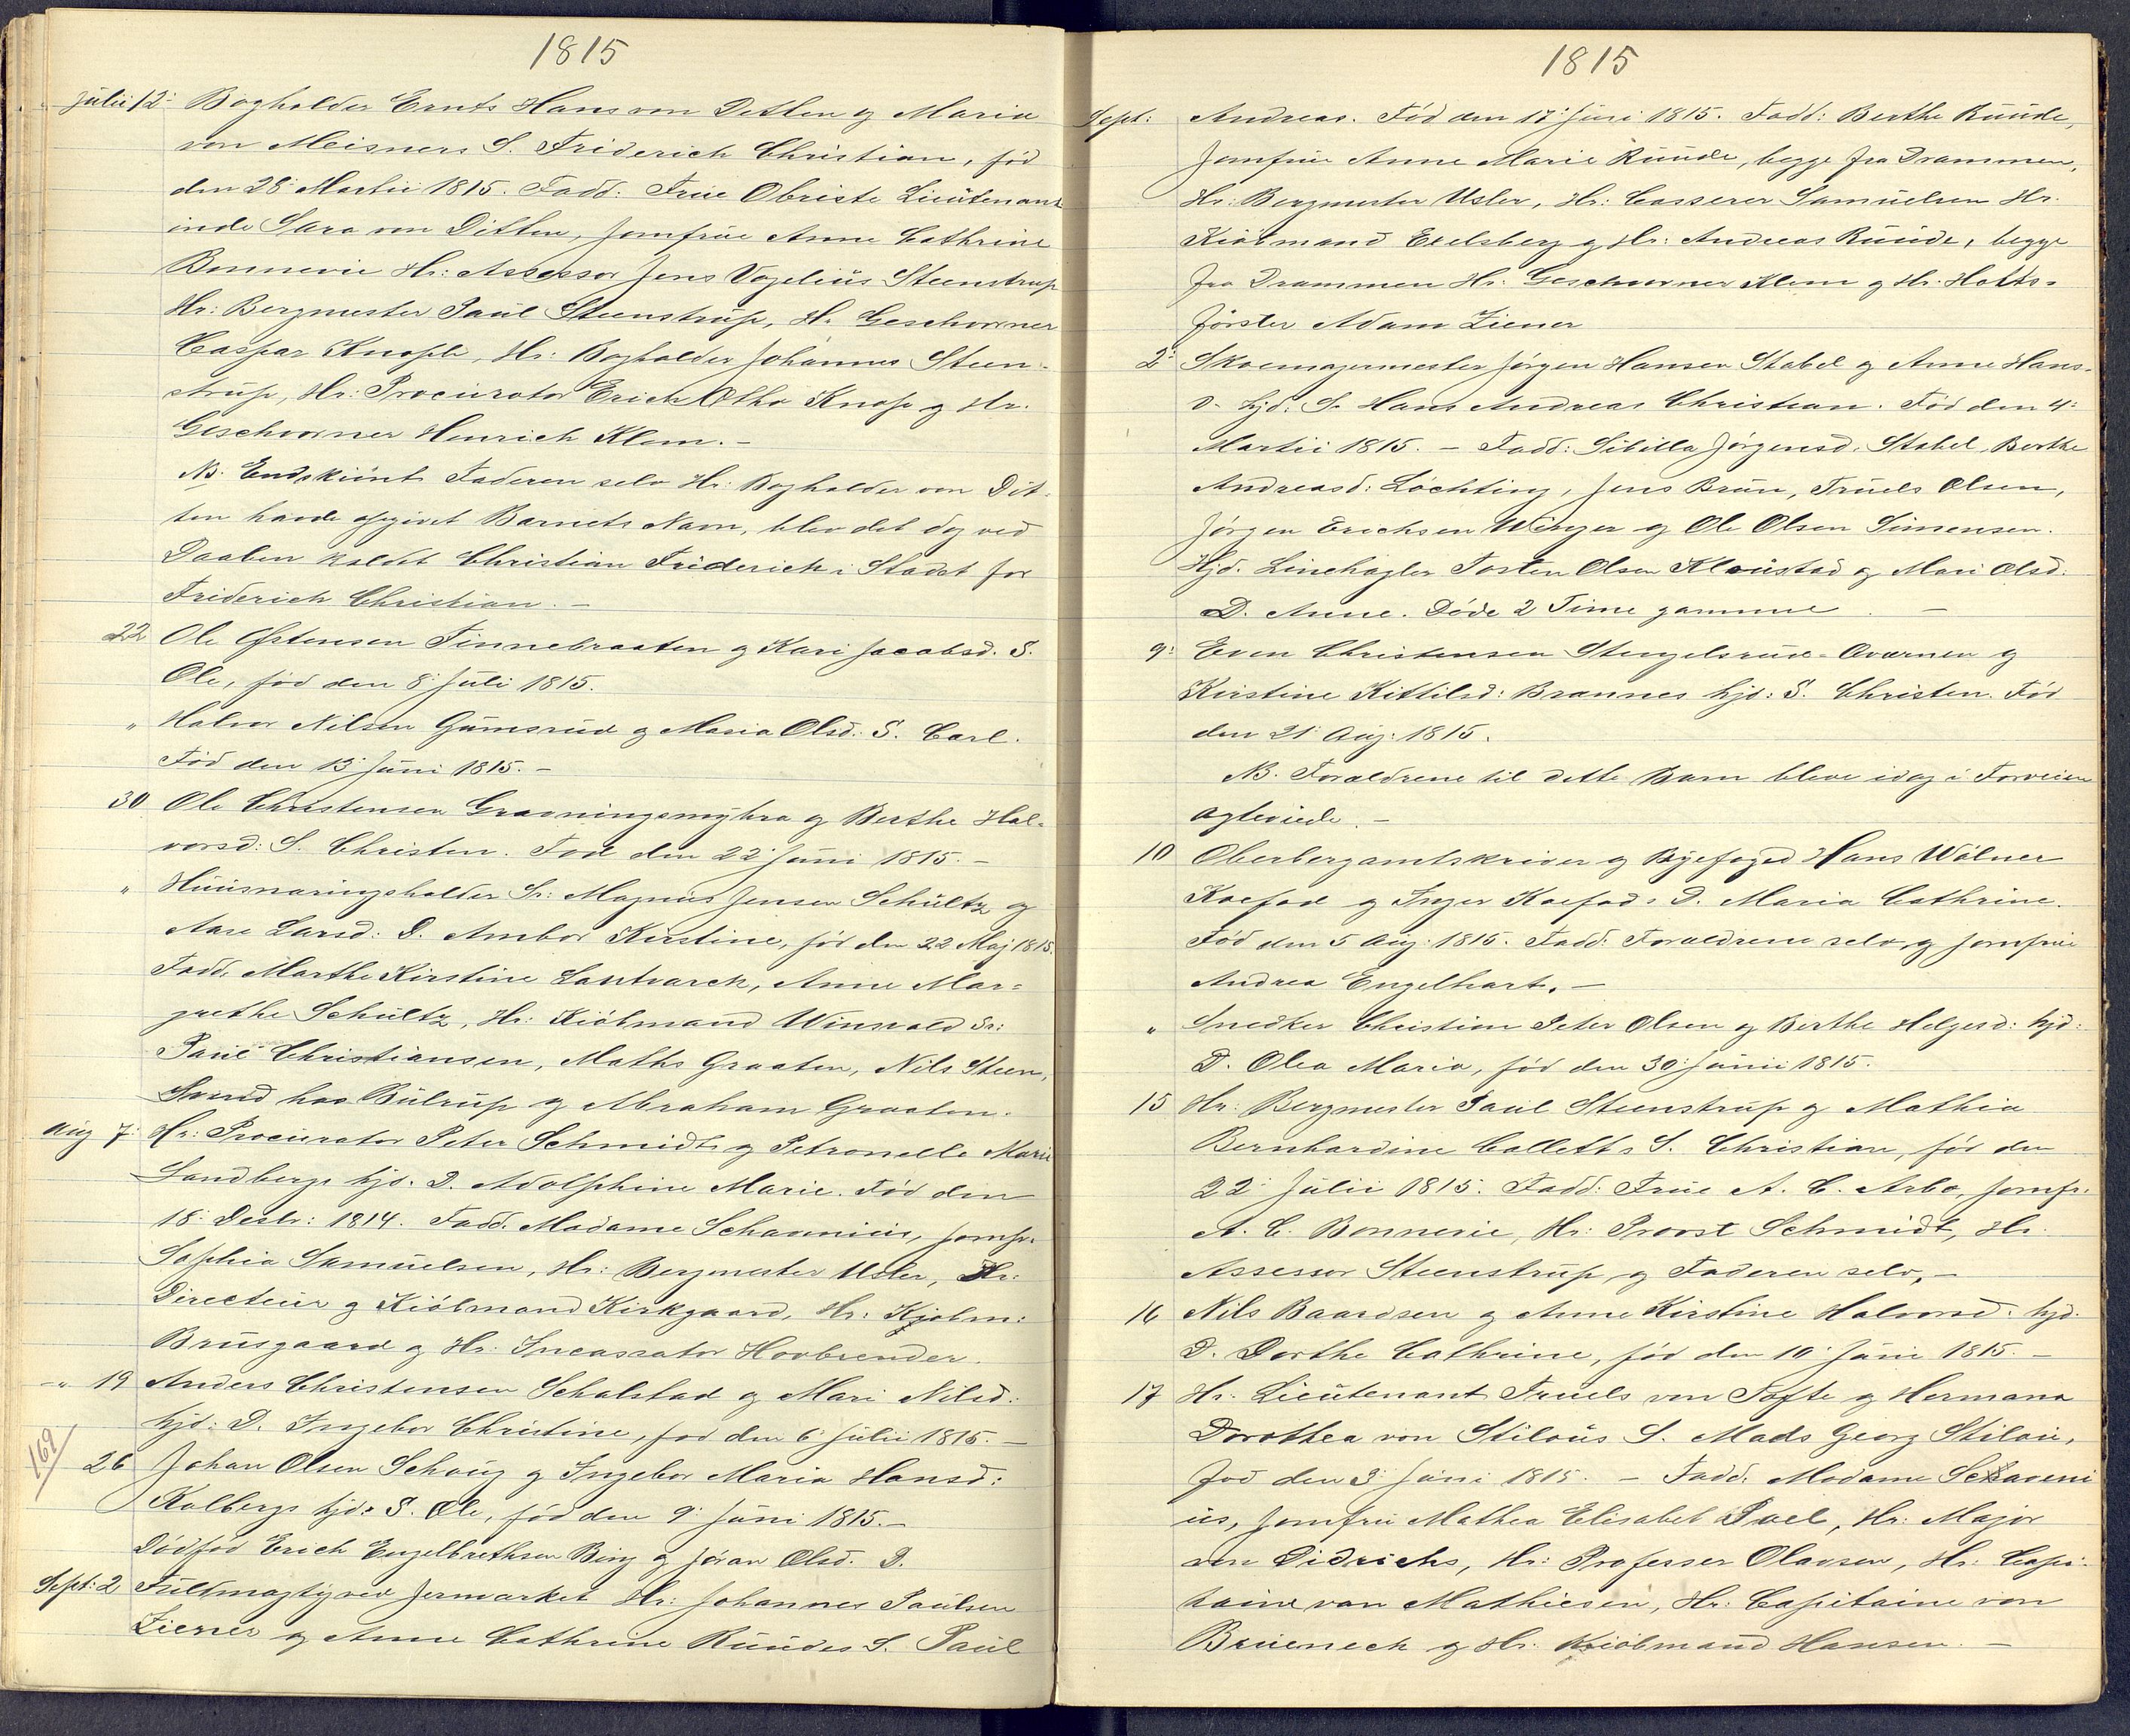 1815
Julii 12: Bogholder Ernts Hans von Ditten og Maria
von Meisners S. Friderich Christian, fød
den 28: Martii 1815. Fadd: Frue Obriste Lieutenant
inde Sara von Ditten, Jomfrue Anne Cathrine
Bonnevie Hr: Assessor Jens Vogelius Steenstrup
Hr: Bergmester Paul Steenstrup, Hr. Geschworner
Caspar Knoph, Hr: Bogholder Johannes Steen-
strup, Hr: Procurator Erich Otho Knoph og Hr.
Geschworner Henrich Klem. -
NB. Endskiönt Faderen selv Hr: Bogholder von Dit-
ten havde opgivet Barnets Navn, blev det dog ved
Daaben kaldet Christian Friderich i Stædet for
Friderich Christian. -
22 Ole Østensen Tinnebraaten og Kari Jacobsd. S.
Ole, fød den 8: Juli 1815.
" Halvor Nilsen Gumsrud og Maria Olsd. S. Carl.
Fød den 13: Juni 1815. -
30 Ole Christensen Gravningsmyhra og Berthe Hal-
vorsd: S. Christen. Fød den 22: Juni 1815. -
" Huusnæringsholder Sr: Magnus Jensen Schültz og
Aase Larsd: D. Ambor Kirstine, fød den 22 Maj 1815.
Fadd. Marthe Kirstine Lantvarck, Anne Mar-
grethe Schültz, Hr: Kiöbmand Winsvald Sr:
Paul Christiansen, Maths Graaten, Nils Steen,
Svend hos Bülrup og Abraham Graaten.
Aug 7: Hr: Procurator Peter Schmidts og Petronelle Marie
Sandbergs hjd. D. Adolphine Marie. Fød den
18: Desbr: 1814. Fadd. Madame Schavenius, Jomfr.
Sophia Samuelsen, Hr: Bergmester Usler, Hr:
Directeur og Kiöbmand Kirkgaard, Hr: Kjøbm:
Bruusgaard og Hr: Incassator Hovbrender.
-" 19 Anders Christensen Schalstad og Mari Nilsd:
hjd: D. Ingebor Christine, fød den 6: Julii 1815. -
169/
26 Johan Olsen Schoug og Ingebor Maria Hansd:
Kolbergs hjd: S. Ole, fød den 9: Juni 1815. -
Dödfød Erich Engelbrethsen Bing og Jöran Olsd. D.
Sept: 2 Fuldmægtig ved Jernværket Hr: Johannes Paulsen
Ziener og Anne Cathrine Ruudes S. Paul
1815
Sept: Andreas. Fød den 17: Juni 1815. Fadd: Berthe Ruude,
Jomfrue Anne Marie Ruude, begge fra Drammen,
Hr: Bergmester Usler, Hr: Casserer Samuelsen Hr.
Kiöbmand Exelsberg og Hr: Andreas Ruude, begge
fra Drammen Hr. Geschworner Klem og Hr. Holts-
förster Adam Ziener
2: Skoemagermester Jörgen Hansen Stabel og Anne Hans-
d. hjd. S. Hans Andreas Christian. Fød den 4:
Martii 1815. - Fadd: Sibilla Jörgensd. Stabel, Berthe
Andreasd: Löchting, Jens Brun, Truels Olsen,
Jörgen Erichsen Winger og Ole Olsen Simensen.
Hjd. Linehagler Tosten Olsen Kloustad og Mari Olsd.
D. Anne. Døde 2 Time gammel. -
9: Even Christensen Stengelsrud-Qværnen og
Kirstine Kittilsd: Brannes hjd: S. Christen. Fød
den 21: Aug: 1815.
NB. Forældrene til dette Barn bleve idag i Forveien
ægteviede. -
10 Oberbergamtskriver og Byefoged Hans Wølner
Koefod og Inger Koefods D. Maria Cathrine.
Fød den 5 Aug: 1815. Fadd: Forældrene selv, og Jomfrue
Andrea Engelhart. -
" Snedker Christian Peter Olsen og Berthe Helgesd: hjd:
D. Olea Maria, fød den 30: Junii 1815.
15 Hr: Bergmester Paul Steenstrup og Mathia
Bernhardine Colletts S. Christian, fød den
22: Julii 1815. Fadd: Frue A. C. Arbo, Jomfr.
A. C. Bonnevie, Hr: Provst Schmidt, Hr.
Assessor Steenstrup og Faderen selv, -
16 Nils Baardsen og Anne Kirstine Halvorsd. hjd.
D. Dorthe Cathrine, fød den 10: Juni 1815. -
17 Hr. Lieutenant Truels von Tofte og Hermana
Dorothea von Stiloüs S. Mads Georg Stilou,
fød den 3: Juni 1815. - Fadd. Madame Schaveni
us, Jomfru Mathea Elisabet Poel, Hr: Major
von Didrichs, Hr: Professer Olavsen, Hr: Capi-
taine von Mathiesen, Hr: Capitaine von
Brüenech og Hr. Kiöbmand Hansen. -